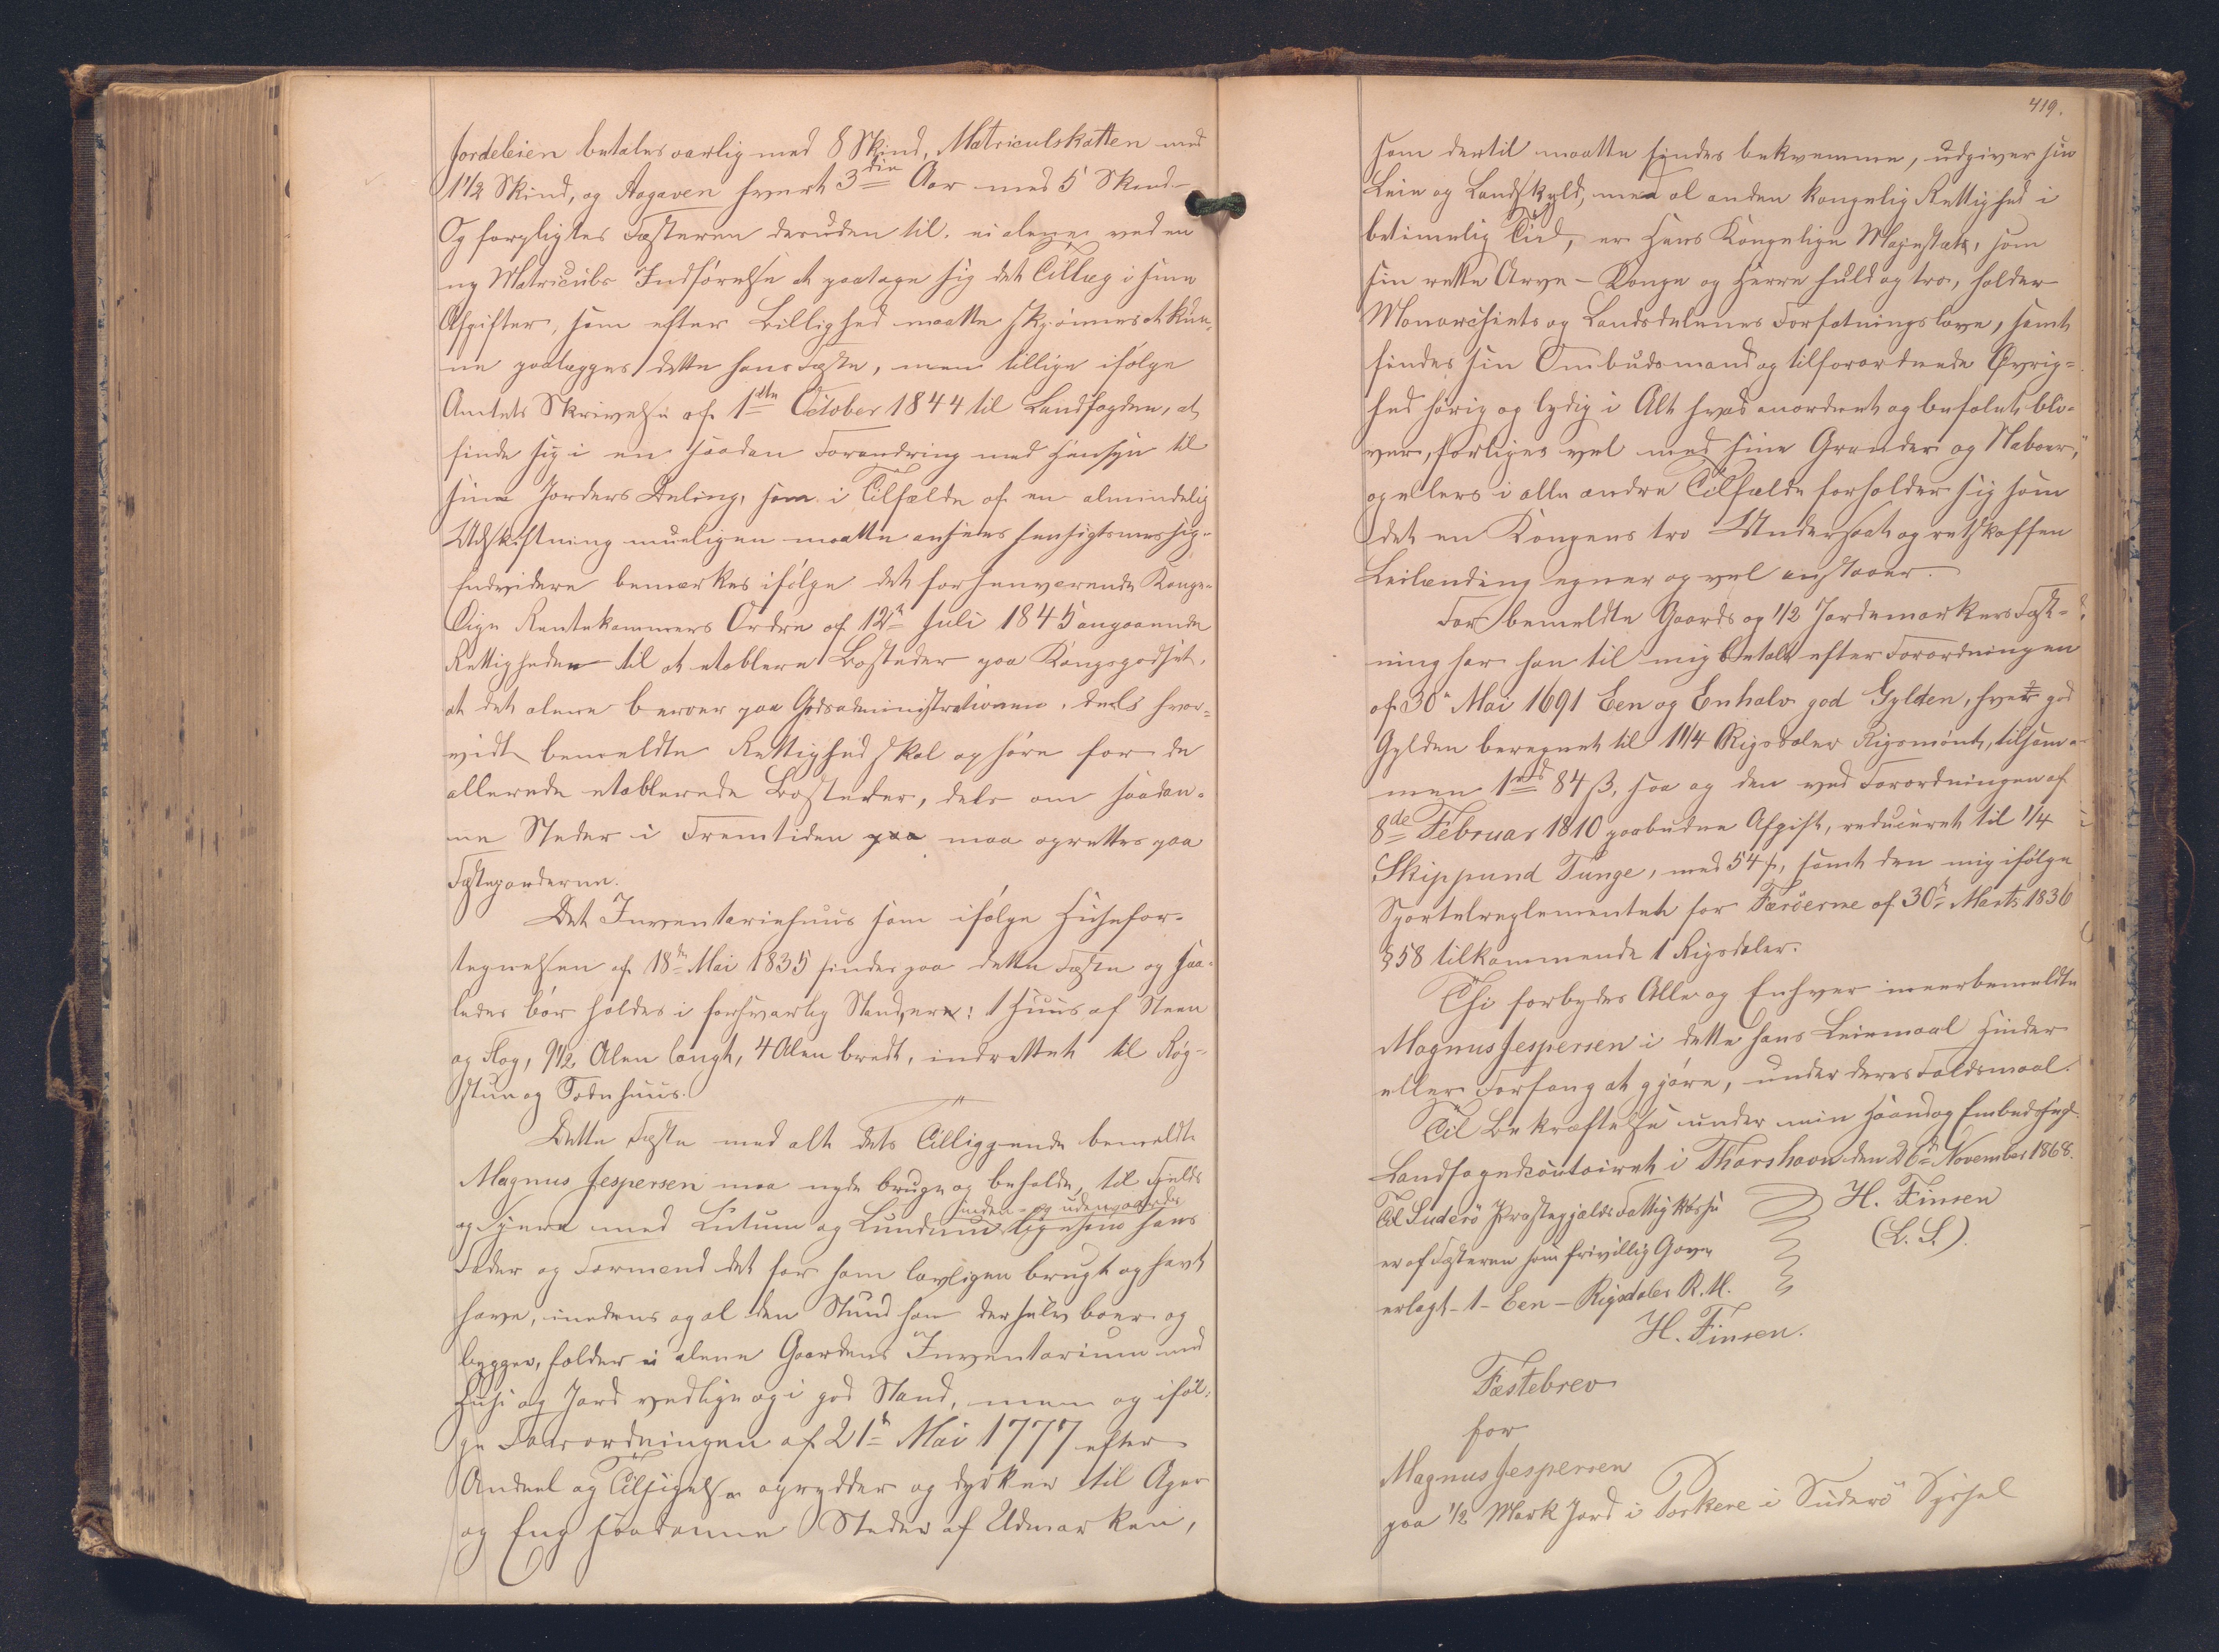 Jordeleien betales aarlig med 8 Skind, Matriculskatten med
1 1/2 Skind, og Aagaven hvert 3die Aar med 5 Skind
Og forpligtes Fæsteren desuden til, ei alene ved en
ny Matriculs Indførelse at paatage sig det Tillæg i sine
Afgifter, som efter Billighed maatte skjønnes at kun-
ne paalægges dette hans Fæste, men tillige ifølge
Amtets Skrivelse af 1ste October 1844 til Landfogden, at
finde sig i en saadan Forandring med Hensyn til
sine Jorders Deling, som i Tilfælde af en almindelig
Udskiftning mueligen maatte ansees hensigtsmessig.
Endvidere bemærkes ifølge det forhenværende Konge-
lige Rentekammers Ordre af 12te Juli 1845 angaaende
Rettigheden til at etablere Bosteder paa Kongsgodset,
at det alene beroer paa Godsadministrationen, deels hvor-
vidt bemeldte Rettighed skal ophøre for de
allerede etablerede Bosteder, dels om saadan-
ne Steder i Fremtiden paa maa oprettes paa
Fæstegaarderne.
Det Inventariehuus som ifølge Husefor-
tegnelsen af 18de Mai 1835 findes paa dette Fæste og saa-
ledes bør holdes i forsvarlig Stand, er: 1 Huus af Steen
og Flag, 9 1/2 Alen langt, 4 Alen bredt, indrettet til Røg-
stue og Fodehuus.
Dette Fæste med alt dets Tilliggende bemeldte
Magnus Jespersen maa nyde bruge og beholde, til Fjelds
inden- og udengaards
og Fjære med Lutum og Lundum ligesom hans
Fader og Formænd det før ham lovligen brugt og havt
have, imedens og al den Stund han der selv boer og
bygger, holder ei alene Gaardens Inventarium med
Huse og Jord vedlige og i god Stand, men og iføl-
ge Forordningen af 21de Mai 1777 efter
Andeel og Tilsigelse oprydder og dyrker til Ager
og Eng saadanne Steder af Udmarken,
419.
som dertil maatte findes bekvemme, udgiver sin
Leie og Landskyld, med al anden kongelig Rettighed i
betimelig Tid, er Hans Kongelige Majestæt, som
sin rette Arve-Konge og Herre huld og tro, holder
Monarchiets og Landsdelenes Forfatningslove, samt
findes sin Ombudsmand og tilforordnede Øvrig-
hed hørig og lydig i Alt hvad anordnet og befalet bli-
ver, forliges vel med sine Grander og Naboer,
og ellers i alle andre Tilfælde forholder sig som
det en Kongens tro Undersaat og retskaffen
Leilænding egner og vel anstaaer.
For bemeldte Gaards og 1/2 Jordemarkers Fæst-
ning har han til mig betalt efter Forordningen
af 30te Mai 1691 Een og Enhalv god Gylden, hver god
Gylden beregnet til 1 1/4 Rigsdaler Rigsmønt, tilsam-
men 1rd 84 ß, saa og den ved Forordningen af
8de Februar 1810 paabudne Afgift, reduceret til 1/4
Skippund Tunge, med 54 ß, samt den mig ifølge
Sportelreglementet for Færøerne af 30te Marts 1836
§ 58 tilkommende 1 Rigsdaler.
Thi forbydes Alle og Enhver meerbemeldte
Magnus Jespersen i dette hans Leiemaal Hinder
eller Forfang at gjøre, under deres Faldsmaal.
Til Bekræftelse under min Haand og Embedssegl.
Landfogedcontoiret i Thorshavn den 26de November 1868.
H. Finsen
(L. S.)
Til Suderø Præstegjælds Fattigkasse
er af Fæsteren som frivillig Gave
erlagt - 1 - Een - Rigsdaler R. M.
H. Finsen.
Fæstebrev
for
Magnus Jespersen
paa 1/2 Mark Jord i Porkere i Suderø Syssel